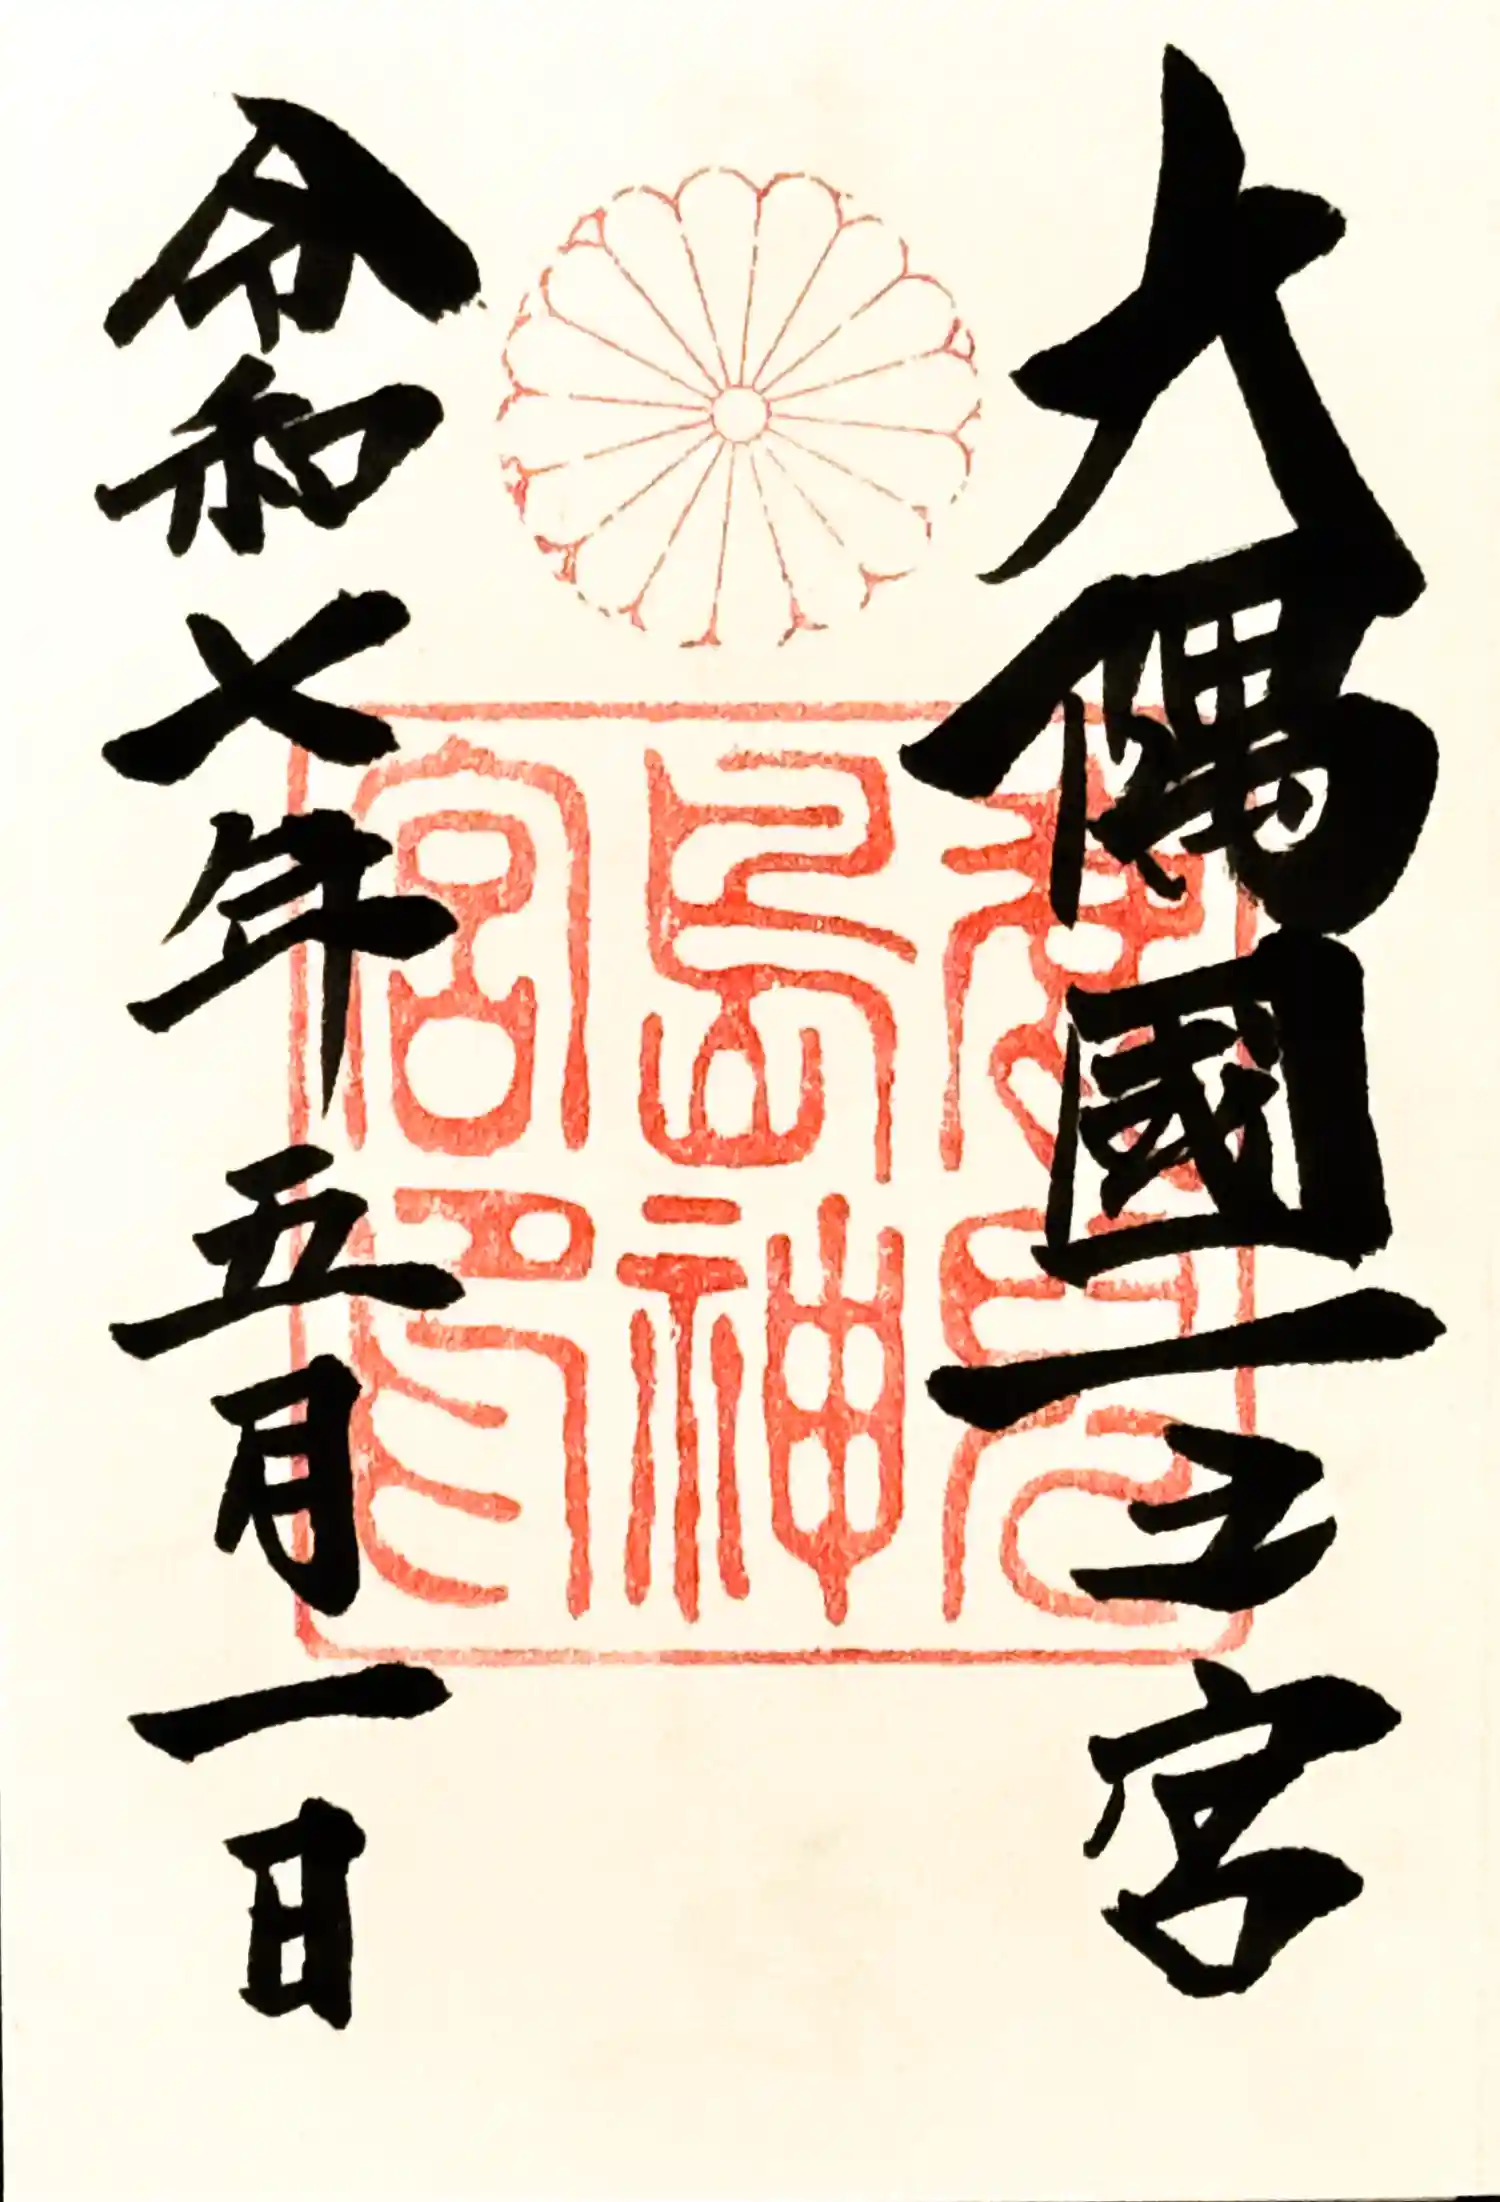 大隅國一之宮
鹿児島神宮印
令和七年五月一日